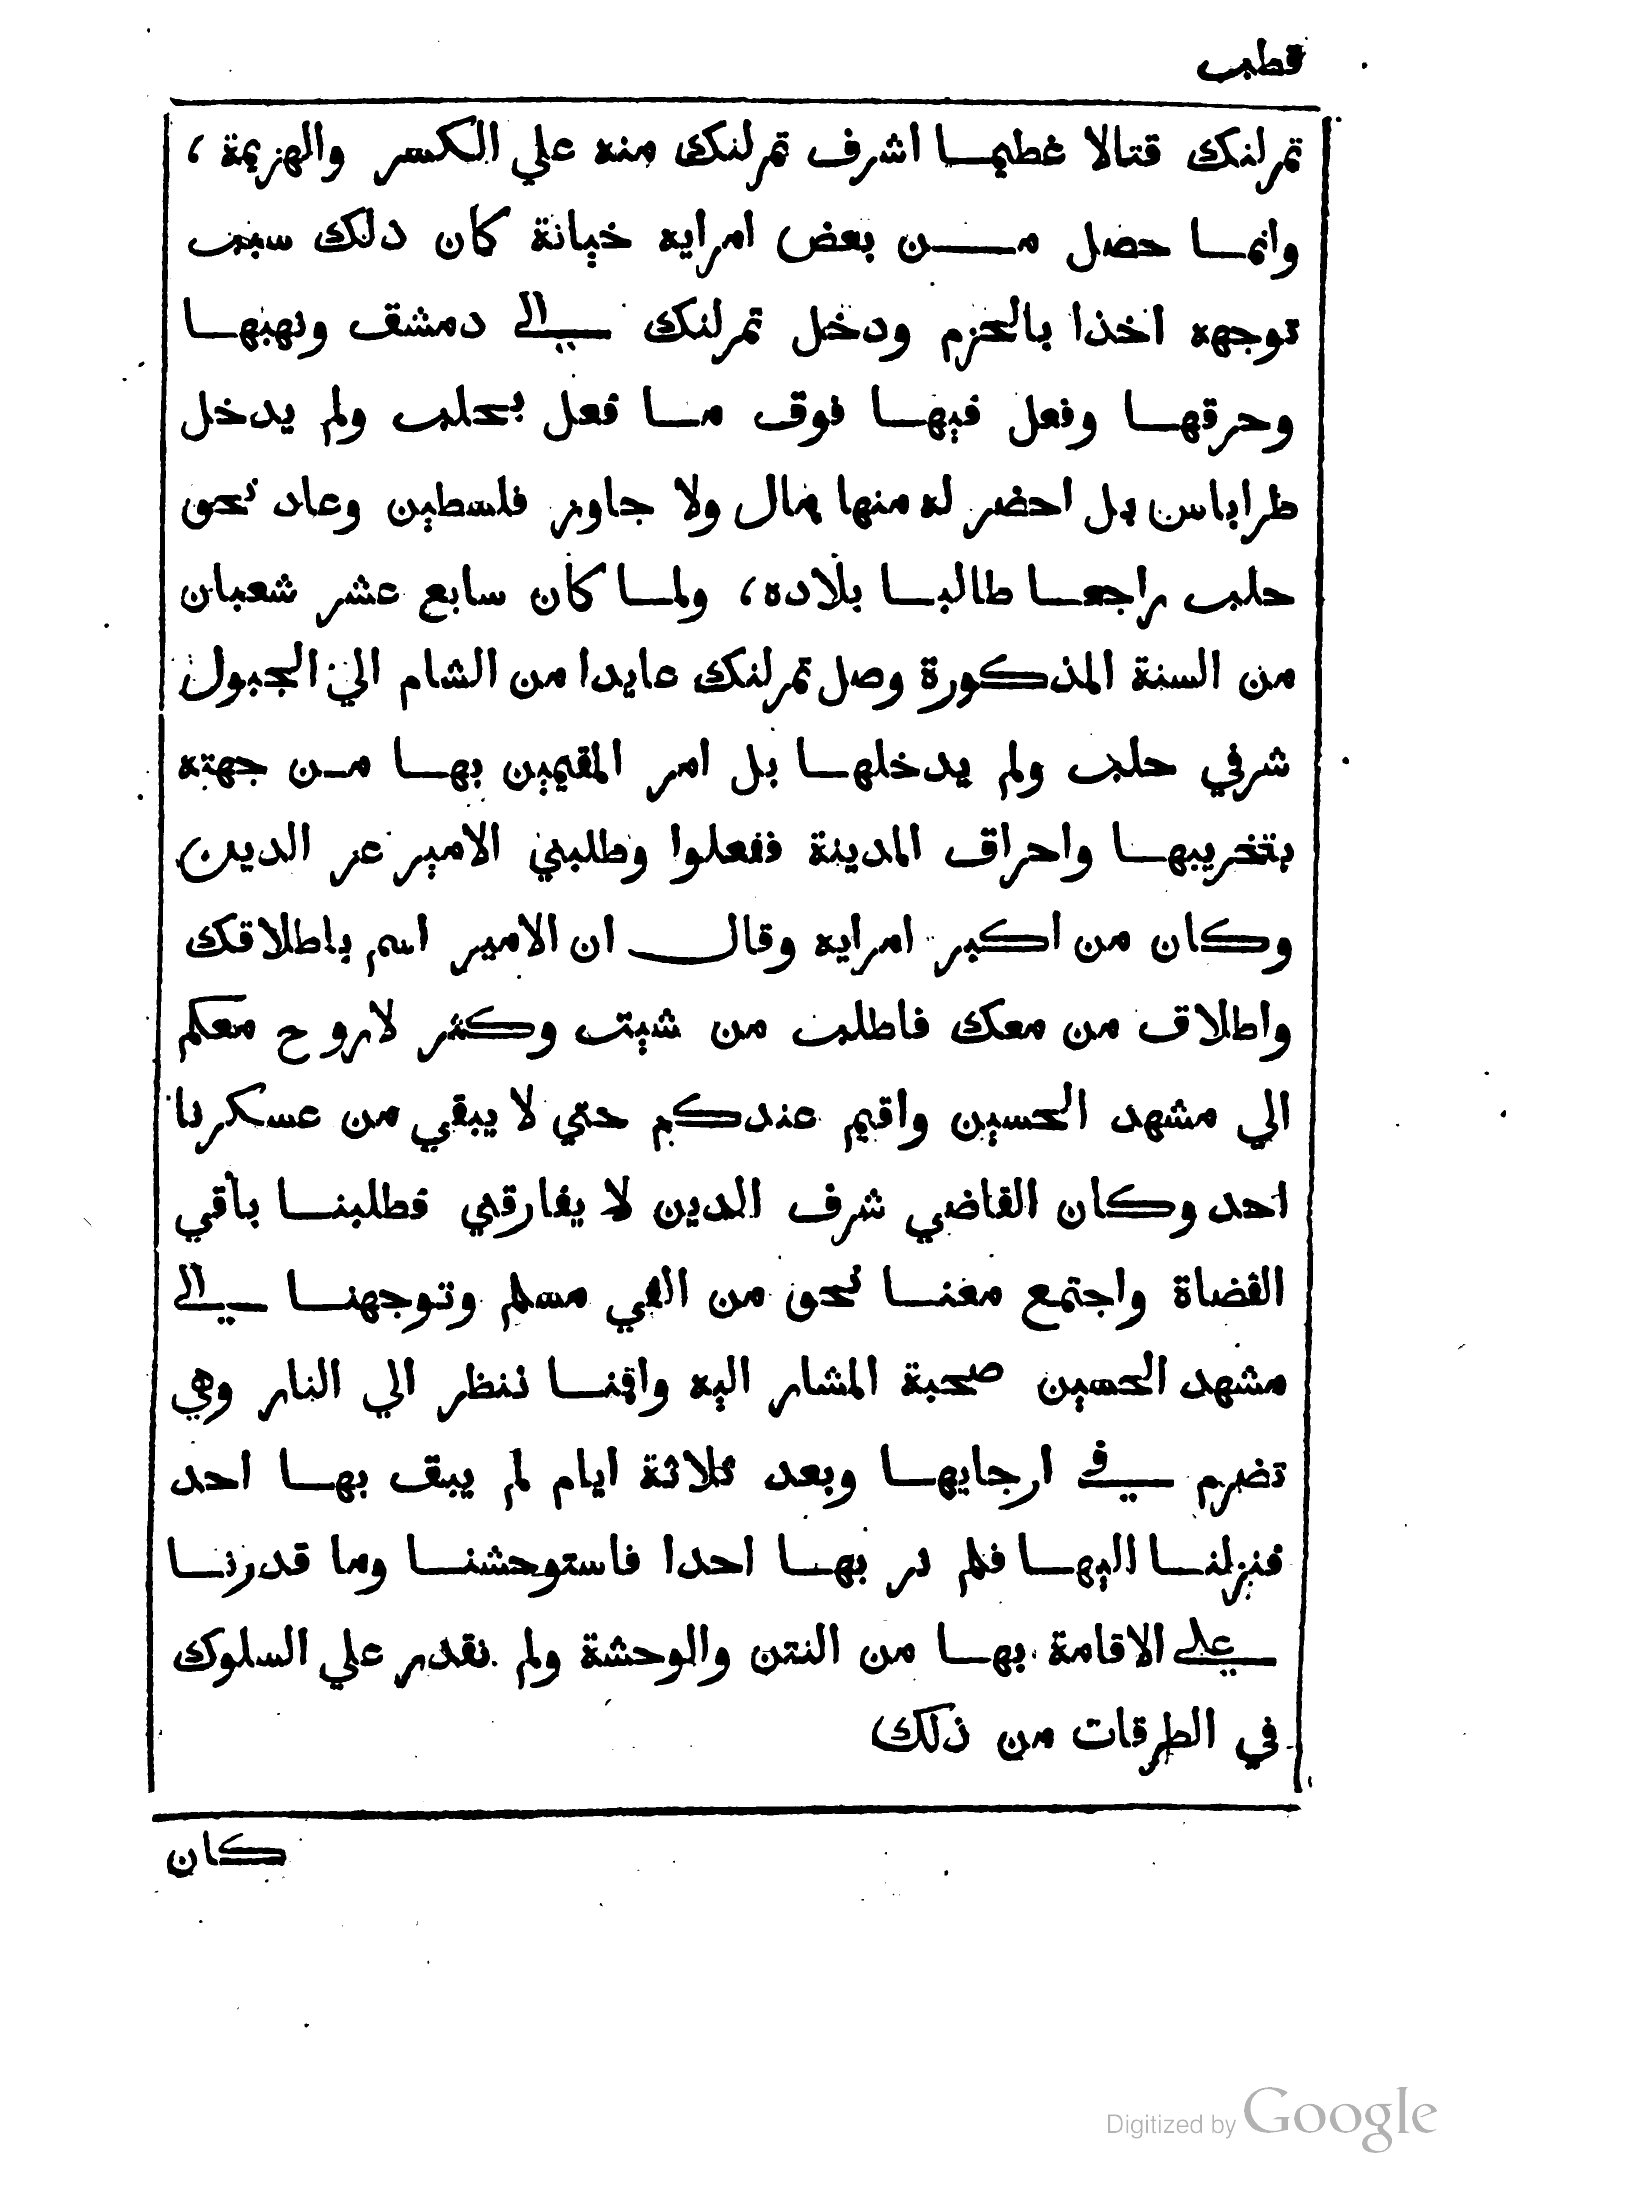 قطب
تمرلنك قتالا غطيمـا اشرف تمرلنك منه علي الكسر والهزيمة ،
وانمـا حصل مـــن بعض امرايه خيانة كان دلك سبب
توجهه اخذا بالحزم ودخل تمرلنك الي دمشق ونهبهـا
وحرقهـا وفعل فيهـا فوق مـا فعل بحلب ولم يدخل
طراباس بل احضر له منها بمال ولا جاوز فلسطين وعاد نحو
حلب راجعـا طالبـا بلاده، ولمـا كان سابع عشر شعبان
من السنة المذكورة وصل تمرلنك عايدا من الشام الي الجبول
شرقي حلب ولم يدخلهـا بل امر المقيمين بهـا مـن جهته
بتخريبهـا واحراق المدينة ففعلوا وطلبني الامير عز الدين
وكان من اكبر امرايه وقال ان الامير اسم باطلاقك
واطلاق من معك فاطلب من شيت وكثر لاروح معكم
الي مشهد الحسين واقيم عندكم حتي لا يبقي من عسكرنا
احد وكان القاضي شرف الدين لا يفارقني فطلبنـا باقي
القضاة واجتمع معنـا نحو من الفي مسلم وتوجهنـا الي
مشهد الحسين صحبة المشار اليه واقمنـا ننظر الي النار وهي
تضرم في ارجايهـا وبعد ثلاثة ايام لم يبق بهـا احد
فنزلنـا اليهـا فلم نر بهـا احدا فاستوحشنـا وما قدرنـا
علي الاقامة بهـا من النتن والوحشة ولم نقدر علي السلوك
في الطرقات من ذلك
كان
Digitized by Google